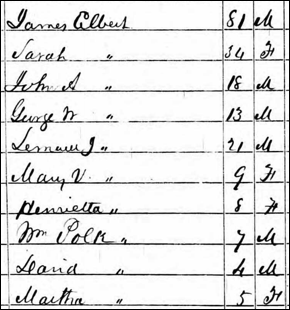 James Elbert 81 M
Sarah " 34 F
John A " 18 M
George W " 13 M
Lemuel J " 21 M
Mary V. " 9 F
Henrietta " 8 F
Wm Polk " 7 M
David " 4 M
Martha " 5 F